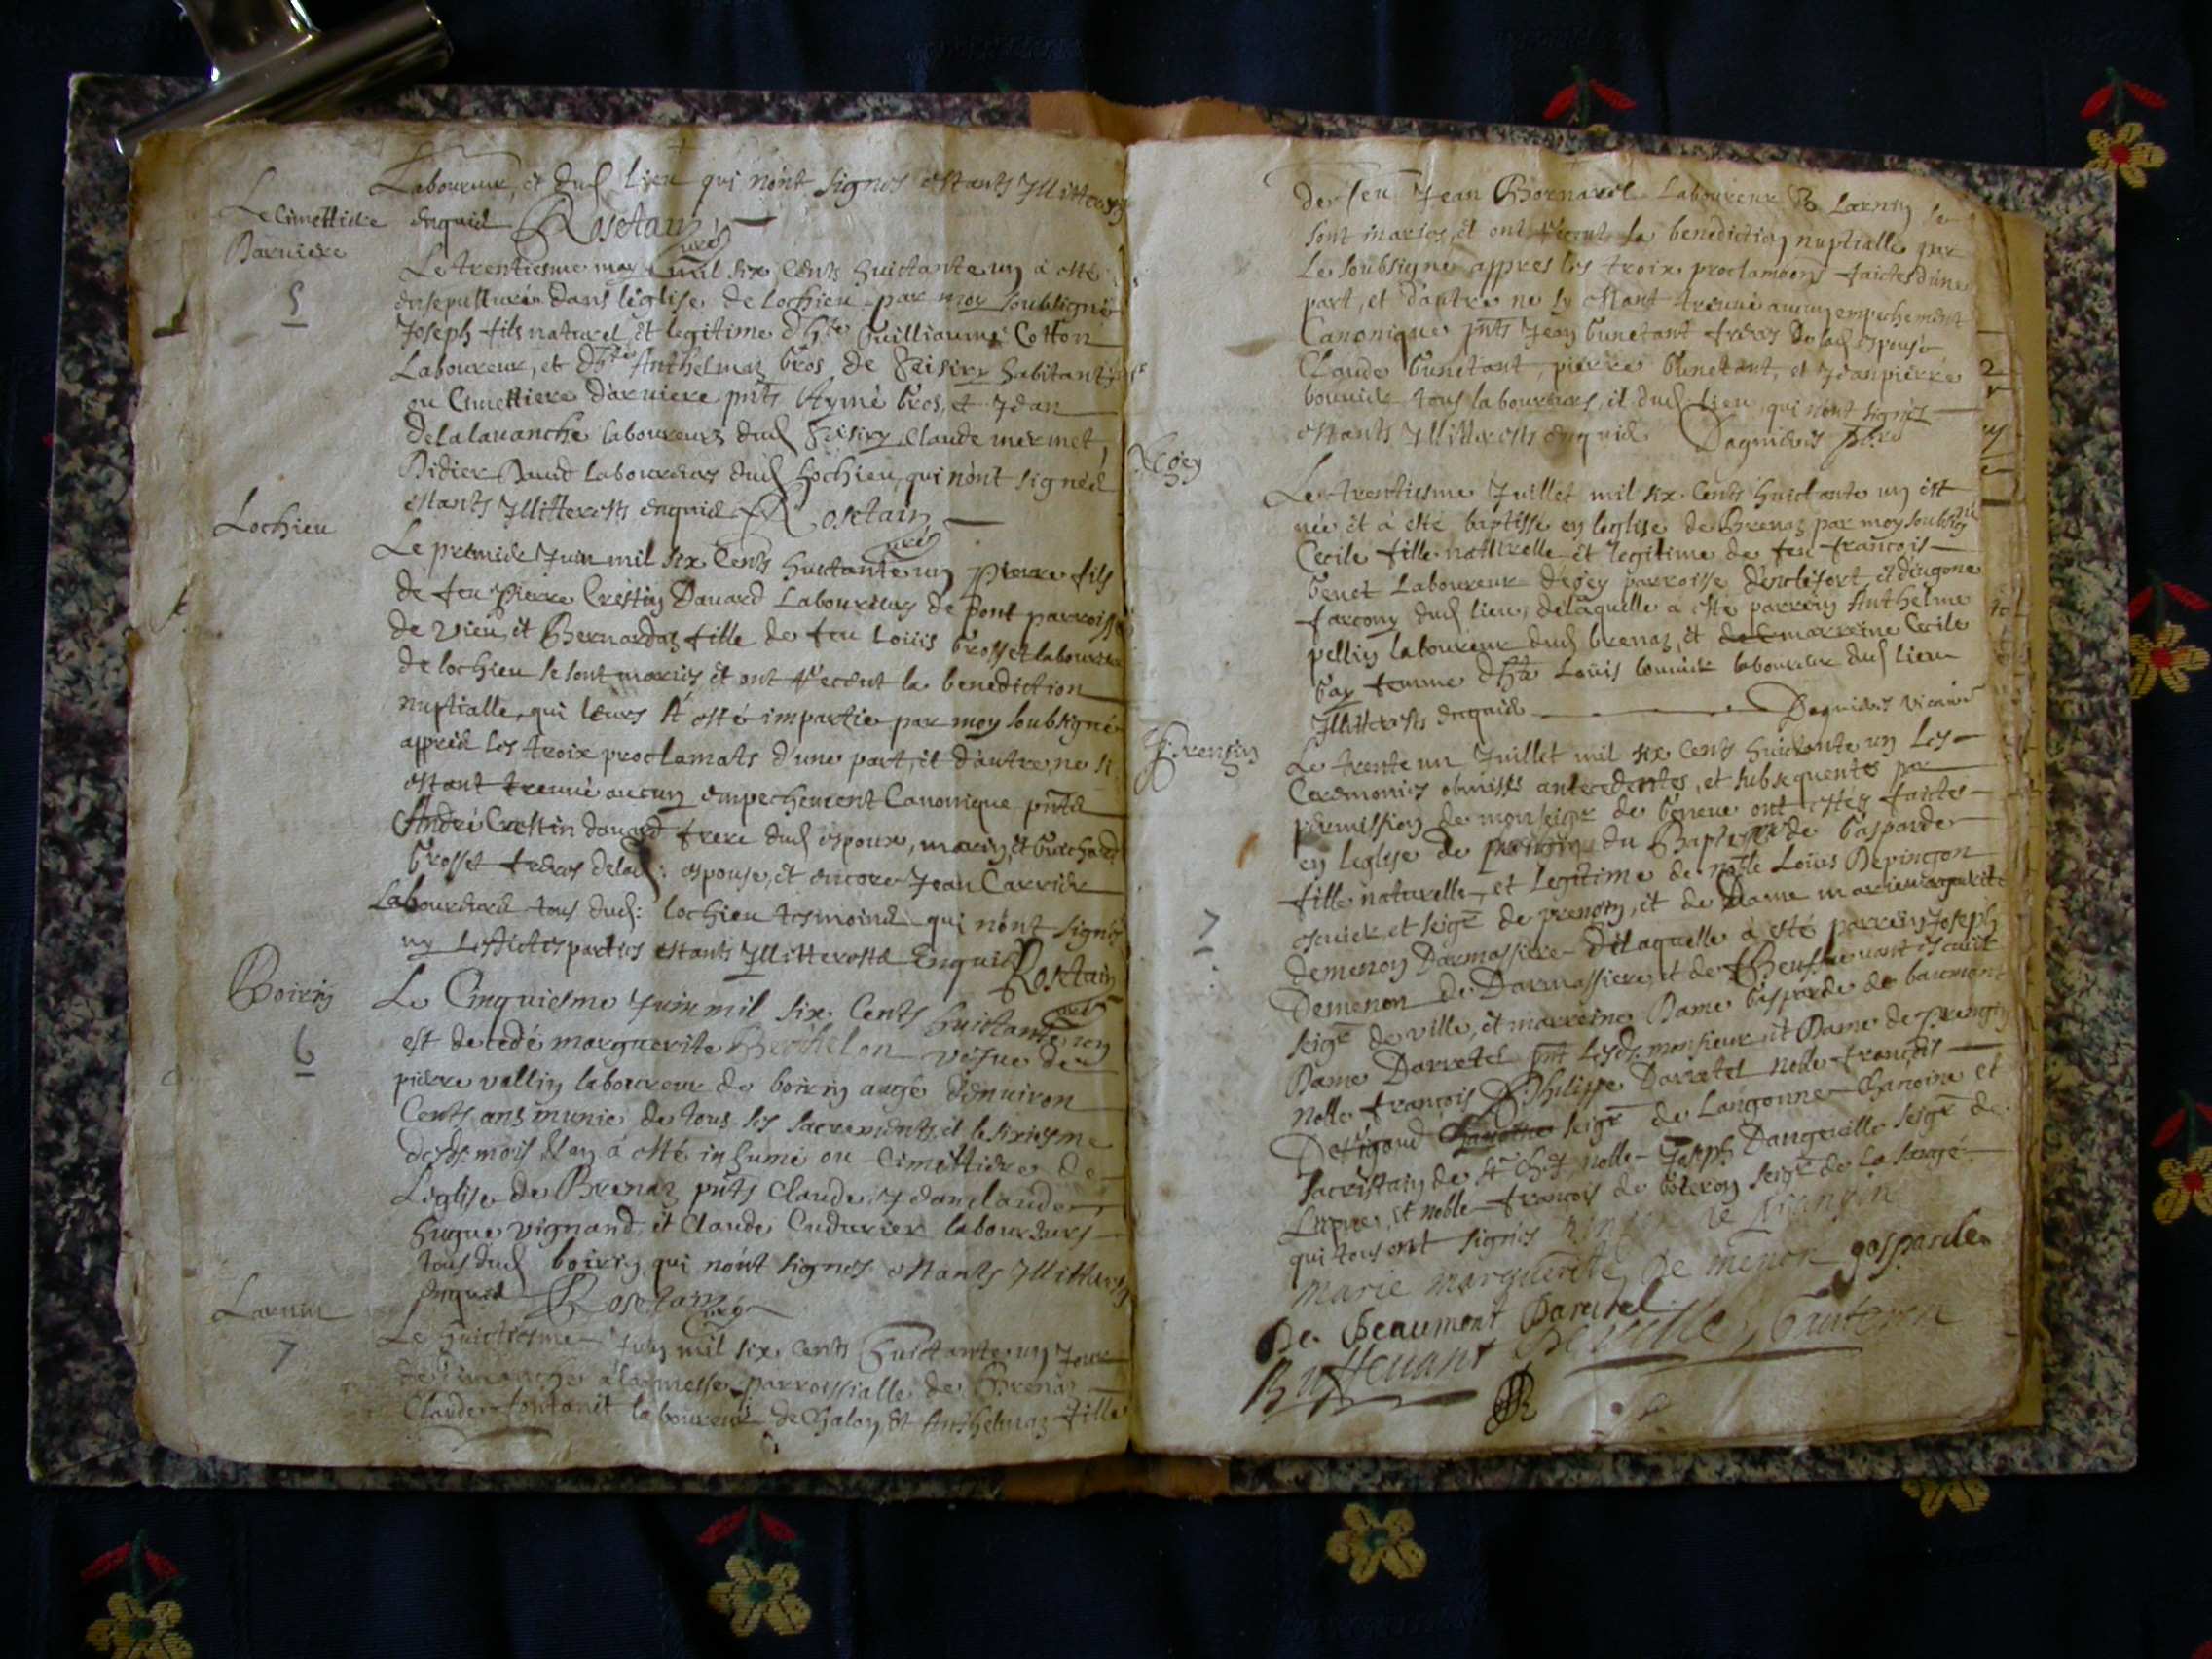 Laboureur, et dud lieu qui nont signes estants Illitterests
Le Cimettiere enquis Rostain
Darniere curé
5
Le trentiesme may mil six cents huictante un à esté
ensepulturé dans léglise de lochieu par moy soubsigné
Joseph fils naturel et legitime dhte Guilliaume Cotton
Laboureur, et dhte Anthelmaz Gros de habitants
ou Cimettiere darniere pnts Aymé Gros, et Jean
delalauanche laboureurs dud Claude mermet,
Didier laboureurs dud Lochieu, qui nont signéd
estants Illitterests enquis Rostain
curé
Lochieu
Le premier Juin mil six Cents huictante un pierre fils
de feu Pierre Crestin Dauard Laboureur de pont parroisse
de vieu, et Bernardaz fille de feu Loüis Grosset laboureur
de lochieu se sont mariés et ont receut la benediction
nuptialle, qui leurs A esté impartie par moy soubsigné
appres les troix proclamats d'une part, et d'autre, ne si
estant treuué aucun empechement Canonique pnts
André Crestin dauard frere dud espoux, marin, et burchard
Grosset freres delad: espouse, et encore Jean Carrier
Laboureurs tous dud: lochieu tesmoins qui nont signés
ny Lesdictes parties estants Illitterests Enquis Rostain
curé
Boirin
6
Le Cinquiesme Juin mil six Cents huictante un
est decedé marguerite vefue de
pierre vallin laboureur de boirin augé denuiron
Cents ans munie de tous ses sacrements, et le sixiesme
desd: mois, & an à esté inhumé ou Cimettiere de
Léglise de Brenaz pnts Claude, Jeanclaude,
hugue vignand, et Claude Cudurier laboureurs
tous dud boirin, qui nont signes estants Illitterests
Enquis Rostain curé
Larnin
7
Le huictiesme Juin mil six cents huictante un Jour
de dimanche à la messe parroissialle de Brenaz
Claude fontanit laboureur de Chaloy, et Anthelmaz fille
de feu Jean Bornarel Laboureur de Larnin se
sont mariés, et ont receut la benediction nuptialle par
Le soubsigné appres les troix proclamaons faictes d'une
part, et d'autre ne sy estant treuué aucun empechement
Canonique pnts Jean bunetant freres de lad espouse
Claude bunetant, pierre bunetant, et Jeanpierre
bouuier tous laboureurs, et dud Lieu, qui nont signés
estants Illitterests enquis Daguieres
Egey
Le trentiesme Juillet mil six Cents huictante un est
née et à esté baptissé en leglise de Brenaz par moy soubsigné
Cecile fille naturelle et legitime de feu françois
benet Laboureur degey parroisse et
dud lieu, delaquelle à esté parrein Anthelme
pellin laboureur dud brenaz, et marreine Cecile
Gay femme dhte Loüis bouuier laboureur dud lieu
Illitterests enquis Daguieres vicaire
Prengin
7
Le trente un Juillet mil six cents huictante un Les
Ceremonies obmisses antecedentes, et subsequentes par
permission de monseigr de Geneue ont estés faictes
en leglise de du Baptesme de Gasparde
fille naturelle, et Legitime de noble Loüis Depingon
escuier, et seigr de prengin, et de Dame mariemarguerite
demenon Darmassiere delaquelle à esté parrein Joseph
Demenon de Darmassiere, et de Buffeuant escuier
seigr de ville, et marreine Dame Gasparde de baumont
Dame Darretel pnt Lesd: monsieur, et Dame de Prengin
noble françois Philippe Darretel noble françois
Chanoine seigr de Langonne Chanoine et
sacristain de noble Joseph Dangeuille seigr de
Lupne, et noble françois de seigr de La
qui tous ont signés
marie marguerite de menon gasparde
De Beaumont Daretel
Buffeuant De uille